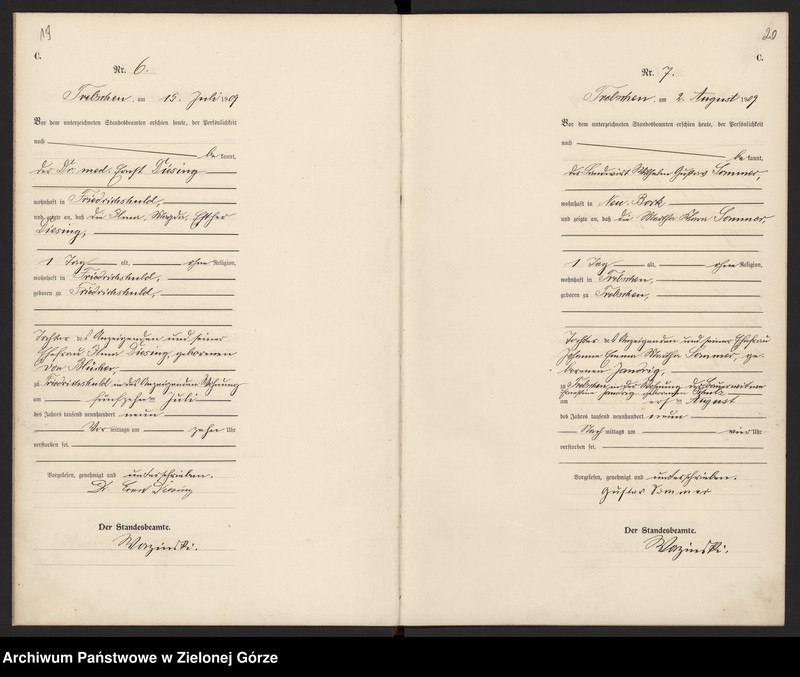 19
C.
Nr. 6.
Trebschen, am 15. Juli 1909
Vor dem unterzeichneten Standesbeamten erschien heute, der Persönlichkeit
nach
be kannt,
der Dr. med. Ernst Diesing
wohnhaft in Friedrichshuld,
und zeigte an, daß die Anna, Magda, Esther
Diesing,
1 Tag alt, ohne Religion,
wohnhaft in Friedrichshuld,
geboren zu Friedrichshuld,
Tochter des Anzeigenden und seiner
Ehefrau Anna Diesing, geborenen
von Blücher,
zu Friedrichshuld in des Anzeigenden Wohnung
am fünfzehnten Juli
des Jahres tausend neunhundert neun
Vor mittags um zehn Uhr
verstorben sei.
Vorgelesen, genehmigt und unterschrieben.
Dr. Ernst Diesing
Der Standesbeamte.
Wazinski.
20
C.
Nr. 7.
Trebschen, am 2. August 1909
Vor dem unterzeichneten Standesbeamten erschien heute, der Persönlichkeit
nach
be kannt,
der Landwirt Wilhelm Gustav Sommer,
wohnhaft in Neu. Bork
und zeigte an, daß die Martha Klara Sommer,
1 Tag alt, ohne Religion,
wohnhaft in Trebschen,
geboren zu Trebschen,
Tochter des Anzeigenden und seiner Ehefrau
Johanne Emma Martha Sommer, ge-
borenen
zu Trebschen, in der Wohnung der
geborenen
am ersten August
des Jahres tausend neunhundert neun
Nach mittags um vier Uhr
verstorben sei.
Vorgelesen, genehmigt und unterschrieben.
Gustav Sommer
Der Standesbeamte.
Wazinski.
Archiwum Państwowe w Zielonej Górze